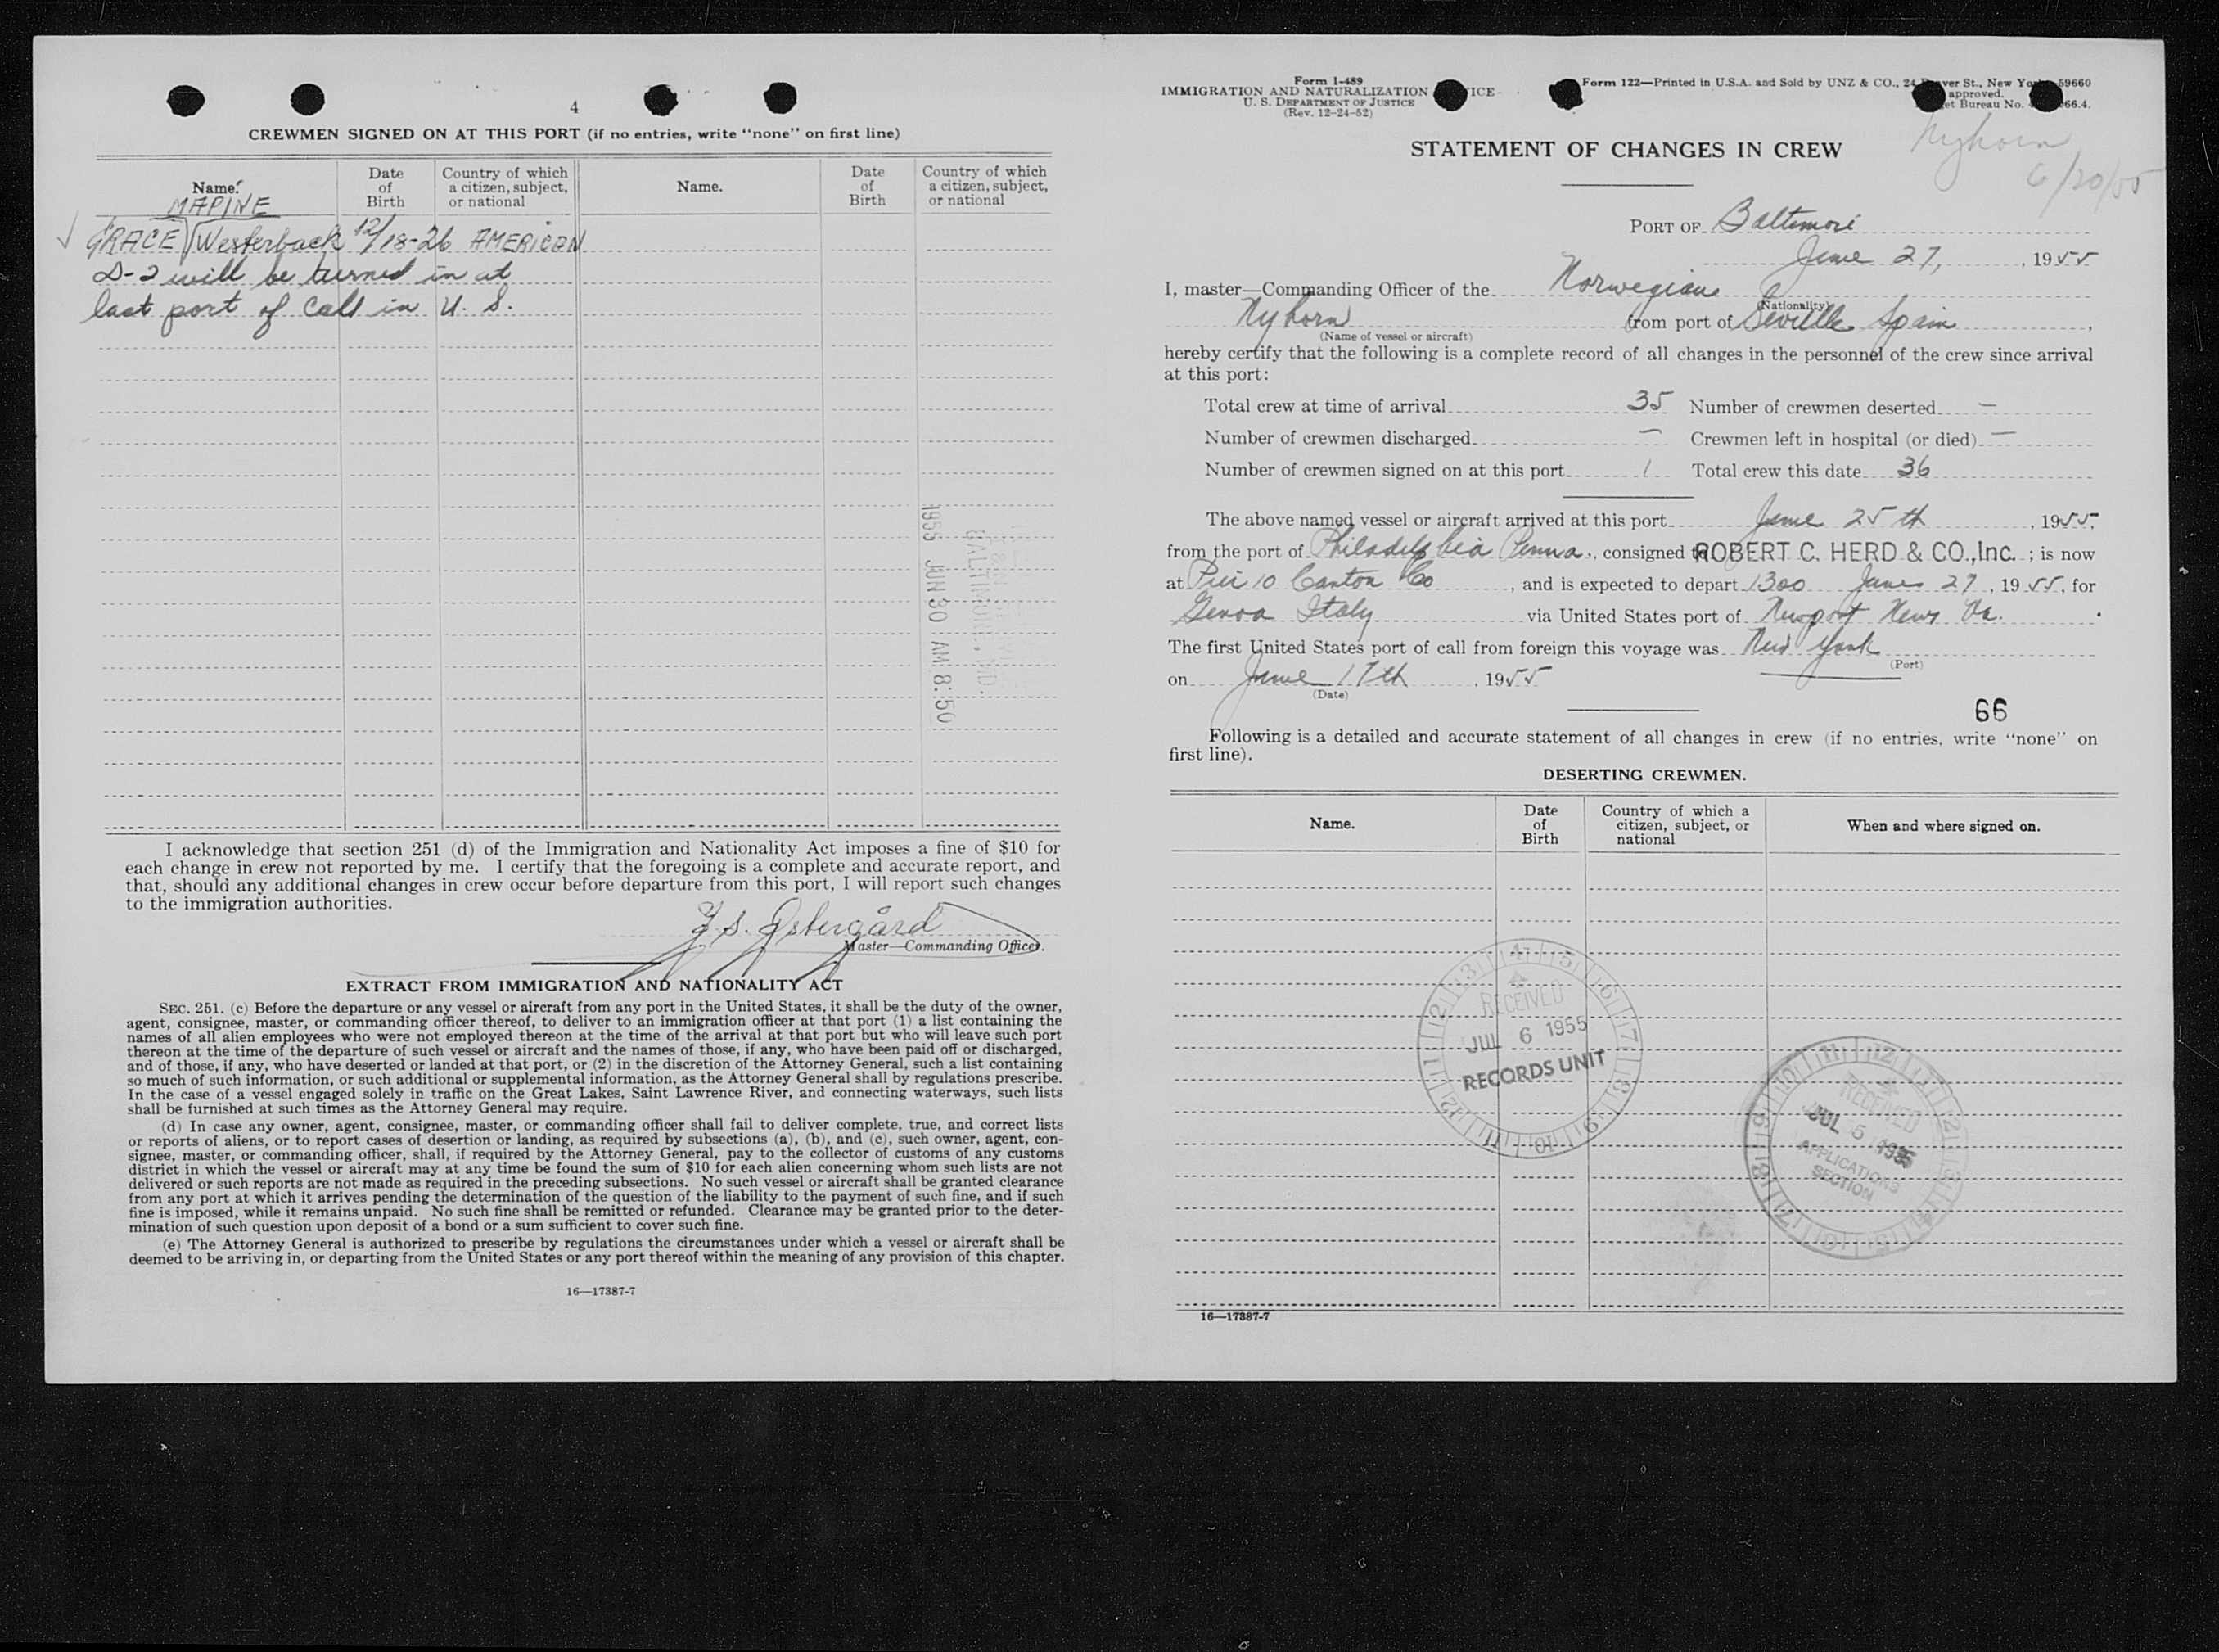 4
CREWMEN SIGNED ON AT THIS PORT (if no entries, write "none" on first line)
Name. Date of Birth Country of which a citizen, subject, or national Name. Date of Birth Country of which a citizen, subject, or national
MAPINE
GRACE Westerback 12/18-26 AMERICAN
D-2 will be turned in at
last port of call in U. S.
1955 JUN 30 AM 8:50
BALTIMORE, MD.
I acknowledge that section 251 (d) of the Immigration and Nationality Act imposes a fine of $10 for
each change in crew not reported by me. I certify that the foregoing is a complete and accurate report, and
that, should any additional changes in crew occur before departure from this port, I will report such changes
to the immigration authorities.
Østergård
Master—Commanding Officer.
EXTRACT FROM IMMIGRATION AND NATIONALITY ACT
SEC. 251. (c) Before the departure or any vessel or aircraft from any port in the United States, it shall be the duty of the owner,
agent, consignee, master, or commanding officer thereof, to deliver to an immigration officer at that port (1) a list containing the
names of all alien employees who were not employed thereon at the time of the arrival at that port but who will leave such port
thereon at the time of the departure of such vessel or aircraft and the names of those, if any, who have been paid off or discharged,
and of those, if any, who have deserted or landed at that port, or (2) in the discretion of the Attorney General, such a list containing
so much of such information, or such additional or supplemental information, as the Attorney General shall by regulations prescribe.
In the case of a vessel engaged solely in traffic on the Great Lakes, Saint Lawrence River, and connecting waterways, such lists
shall be furnished at such times as the Attorney General may require.
(d) In case any owner, agent, consignee, master, or commanding officer shall fail to deliver complete, true, and correct lists
or reports of aliens, or to report cases of desertion or landing, as required by subsections (a), (b), and (c), such owner, agent, con-
signee, master, or commanding officer, shall, if required by the Attorney General, pay to the collector of customs of any customs
district in which the vessel or aircraft may at any time be found the sum of $10 for each alien concerning whom such lists are not
delivered or such reports are not made as required in the preceding subsections. No such vessel or aircraft shall be granted clearance
from any port at which it arrives pending the determination of the question of the liability to the payment of such fine, and if such
fine is imposed, while it remains unpaid. No such fine shall be remitted or refunded. Clearance may be granted prior to the deter-
mination of such question upon deposit of a bond or a sum sufficient to cover such fine.
(e) The Attorney General is authorized to prescribe by regulations the circumstances under which a vessel or aircraft shall be
deemed to be arriving in, or departing from the United States or any port thereof within the meaning of any provision of this chapter.
16—17387-7
Form I-489
IMMIGRATION AND NATURALIZATION
U. S. DEPARTMENT OF JUSTICE
(Rev. 12-24-52)
Form 122—Printed in U.S.A. and Sold by UNZ & CO., 24 St., New 59660
approved.
Bureau No. 66.4.
Nyhorn
6/20/55
STATEMENT OF CHANGES IN CREW
PORT OF Baltimore
June 27, , 1955
I, master—Commanding Officer of the Norwegian
(Nationality)
Nyhorn from port of Seville Spain ,
(Name of vessel or aircraft)
hereby certify that the following is a complete record of all changes in the personnel of the crew since arrival
at this port:
Total crew at time of arrival 35 Number of crewmen deserted —
Number of crewmen discharged — Crewmen left in hospital (or died) —
Number of crewmen signed on at this port 1 Total crew this date 36
The above named vessel or aircraft arrived at this port June 25th , 1955,
from the port of Philadelphia Penna., consigned to ROBERT C. HERD & CO., Inc. ; is now
at Pier 10 Canton Co , and is expected to depart 1300 June 27, 1955, for
Genoa Italy via United States port of Newport News Va.
The first United States port of call from foreign this voyage was New York
(Port)
on June 17th , 1955
(Date)
66
Following is a detailed and accurate statement of all changes in crew (if no entries, write "none" on
first line).
DESERTING CREWMEN.
Name. Date of Birth Country of which a citizen, subject, or national When and where signed on.
RECEIVED
JUL 6 1955
RECORDS UNIT
RECEIVED
JUL 5 1955
APPLICATIONS
SECTION
16—17387-7